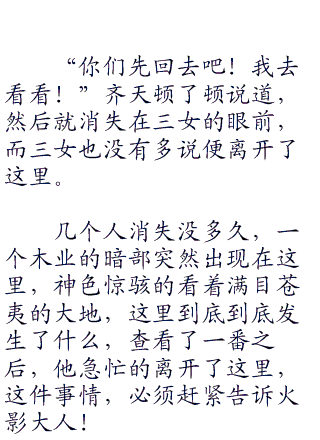 “你们先回去吧！我去
看看！”齐天顿了顿说道，
然后就消失在三女的眼前，
而三女也没有多说便离开了
这里。
几个人消失没多久，一
个木业的暗部突然出现在这
里，神色惊骇的看着满目苍
夷的大地，这里到底到底发
生了什么，查看了一番之
后，他急忙的离开了这里，
这件事情，必须赶紧告诉火
影大人！